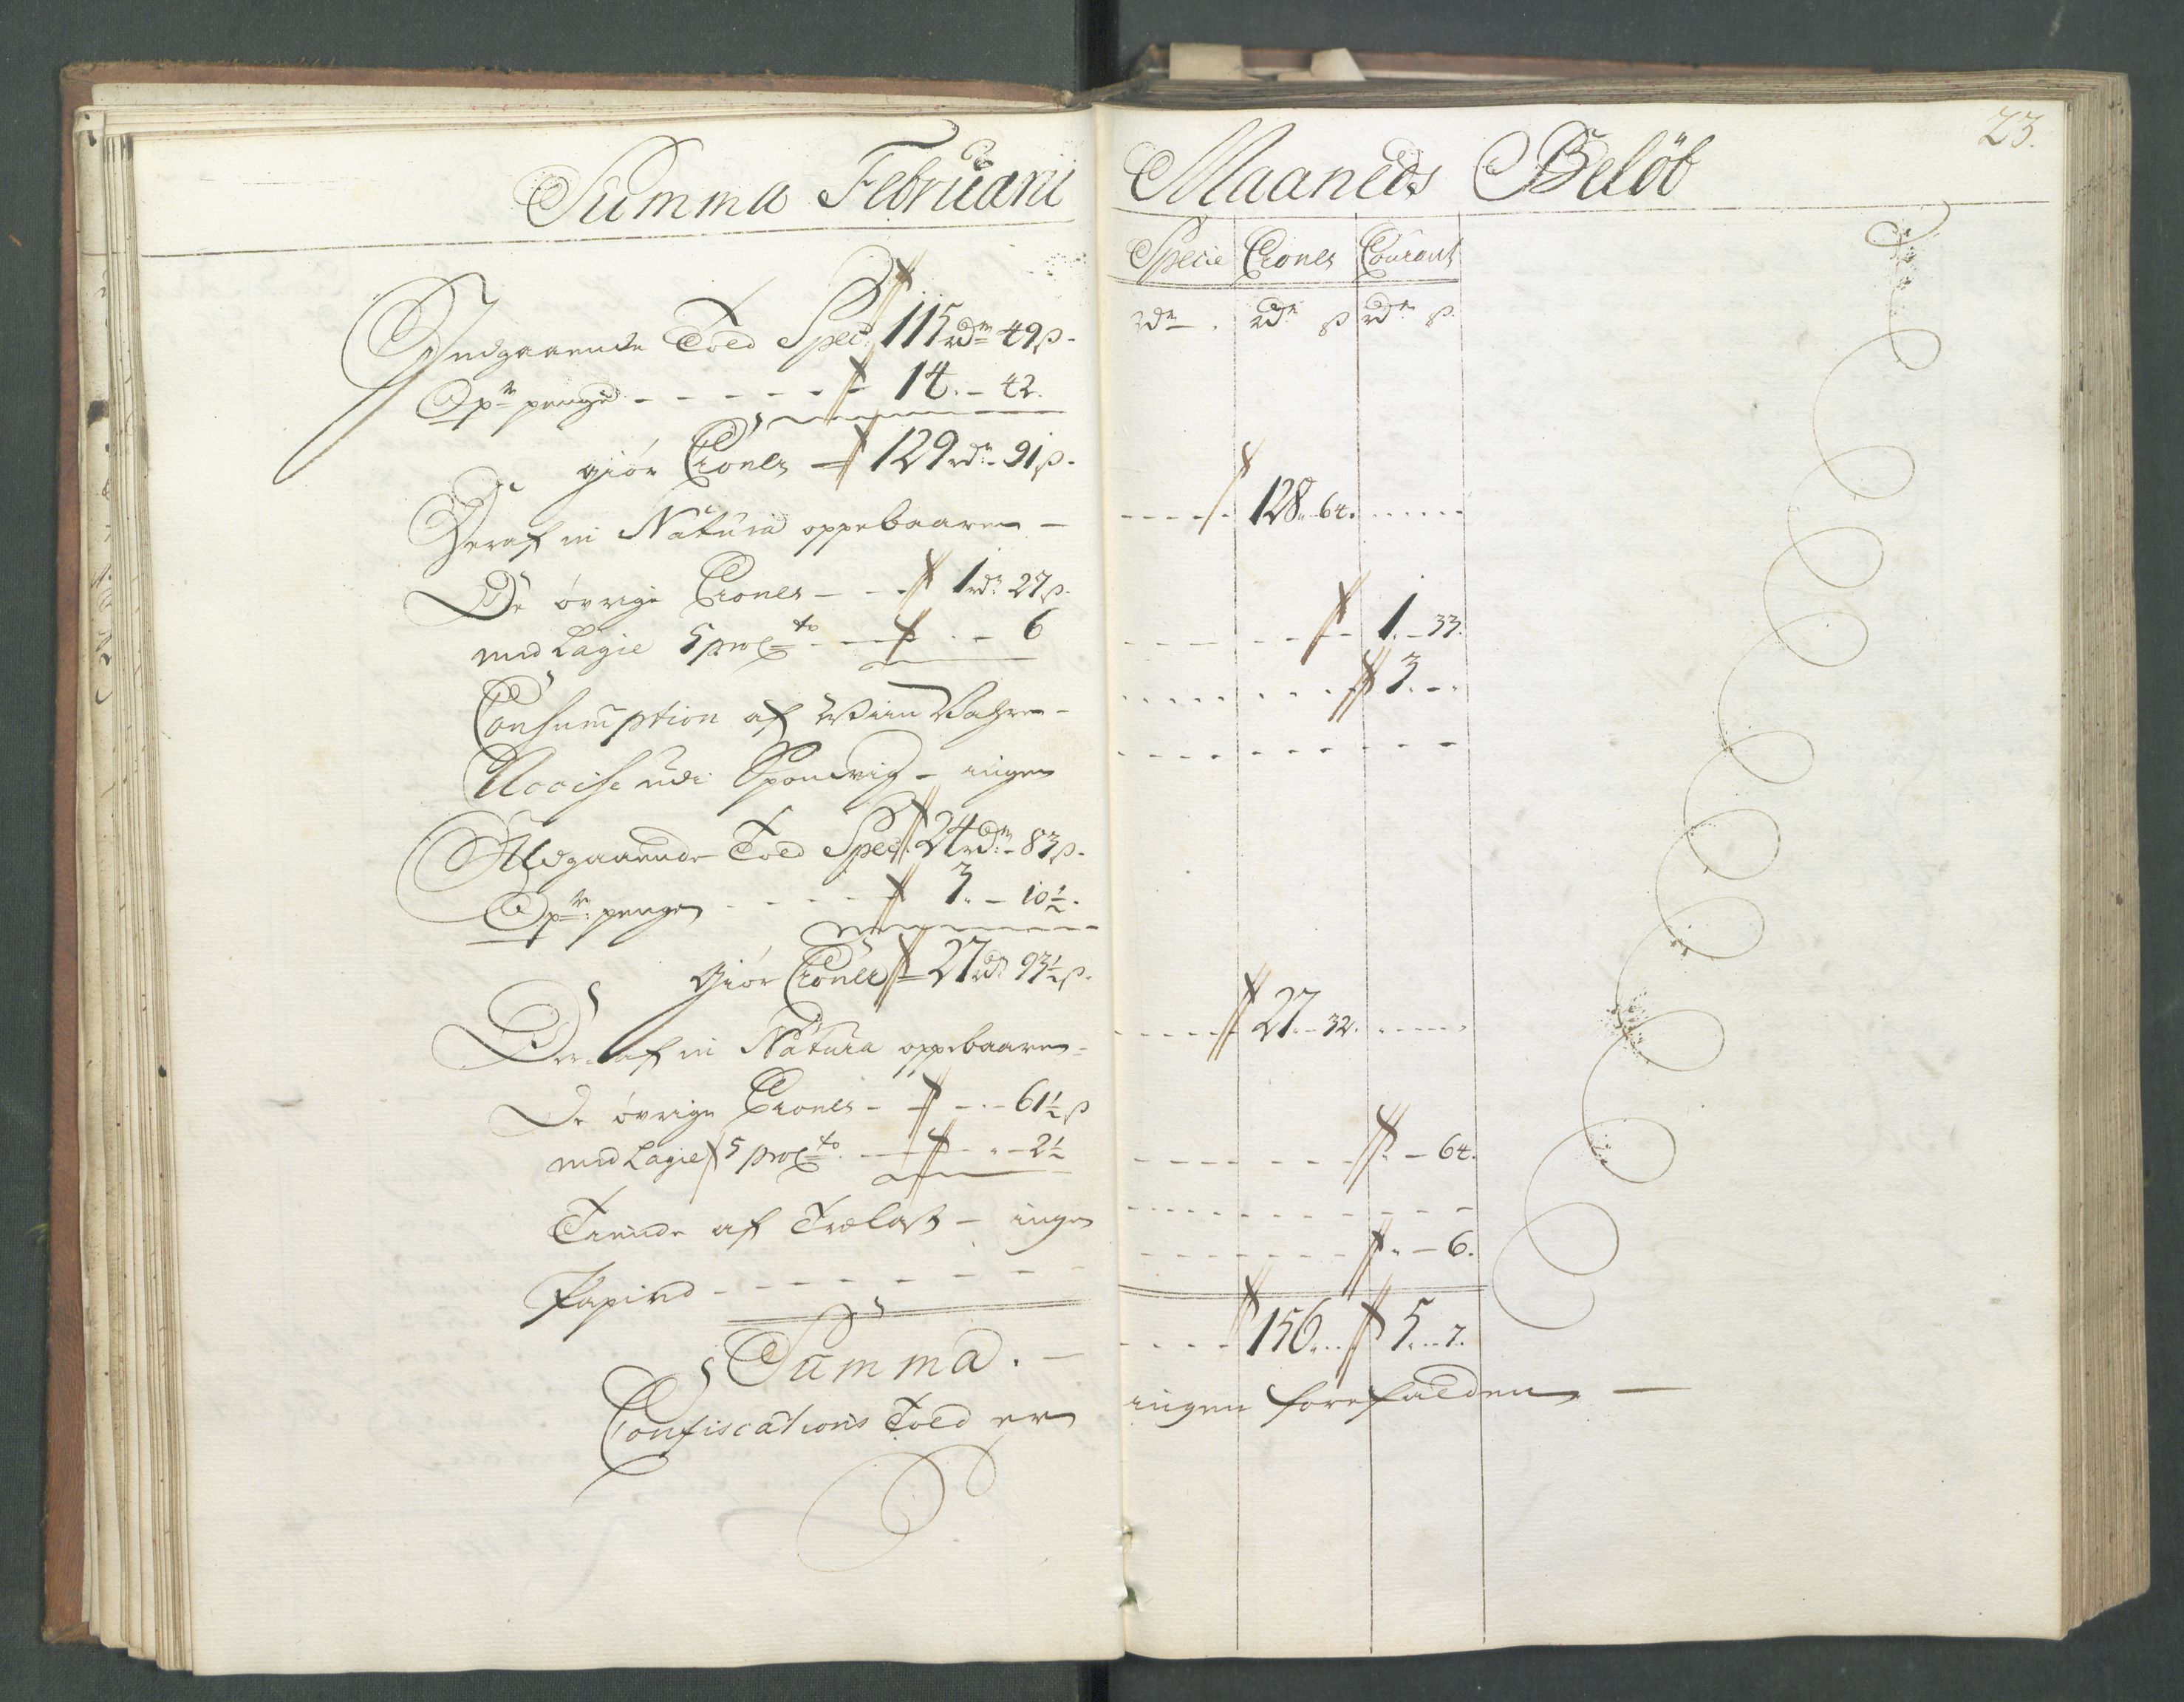 23.
Summa Februarii Maaneds Beløb
Specie Croner Courant
rdr. rdr ß rdr ß.
Indgaaende Told Spec. 115 rdr 49 ß.
Opr penge - - - - - 14. - 42.
giør Croner - 129 rdr. 91 ß.
Deraf in Natura oppebaaren - 128. 64.
De øvrige Croner - - 1 rdr. 27 ß.
med Lagie 5 proCto - - - 6 1. - 33.
Consumption af Wiin Vahre - 3. - .
Accise udi - ingen
Udgaaende Told Spec. 24 rdr. 83 ß.
Opr. penge - - - - 3. - 10 1/2.
Giør Croner - 27 rdr. 93 1/2 ß.
Deraf in Natura oppebaaren - 27. - 32.
De øvrige Croner - - - 61 1/2 ß
med Lagie 5 proCto. - - - 2 1/2 - 64.
Tiende af Trælast - ingen
Papird - - - - - - - 6.
Summa. - 156. . 5. - 7.
Confiscations Told er ingen forefalden -